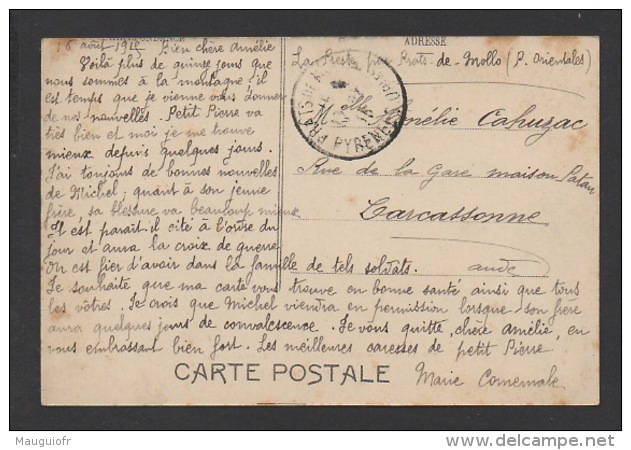 CORRESPONDANCE
ADRESSE
16 août 1915 Bien chère Amélie
Voilà plus de quinze jours que
nous sommes à la montagne ; il
est temps que je vienne vous donner
de nos nouvelles. Petit Pierre va
très bien et moi je me trouve
mieux depuis quelques jours.
J'ai toujours de bonnes nouvelles
de Michel ; quant à son jeune
frère, sa blessure va beaucoup mieux
Il est parait-il cité à l'ordre du
jour et aura la croix de guerre.
On est fier d'avoir dans la famille de tels soldats.
Je souhaite que ma carte vous trouve en bonne santé ainsi que tous
les vôtres. Je crois que Michel viendra en permission lorsque son frère
aura quelques jours de convalescence. Je vous quitte, chère Amélie, en
vous embrassant bien fort. Les meilleures caresses de petit Pierre
Marie
La Preste par Prats-de-Mollo (P. Orientales)
Melle Amélie Cahuzac
Rue de la Gare maison Patau
Carcassonne
aude
CARTE POSTALE
Mauguiofr
www.delcampe.net